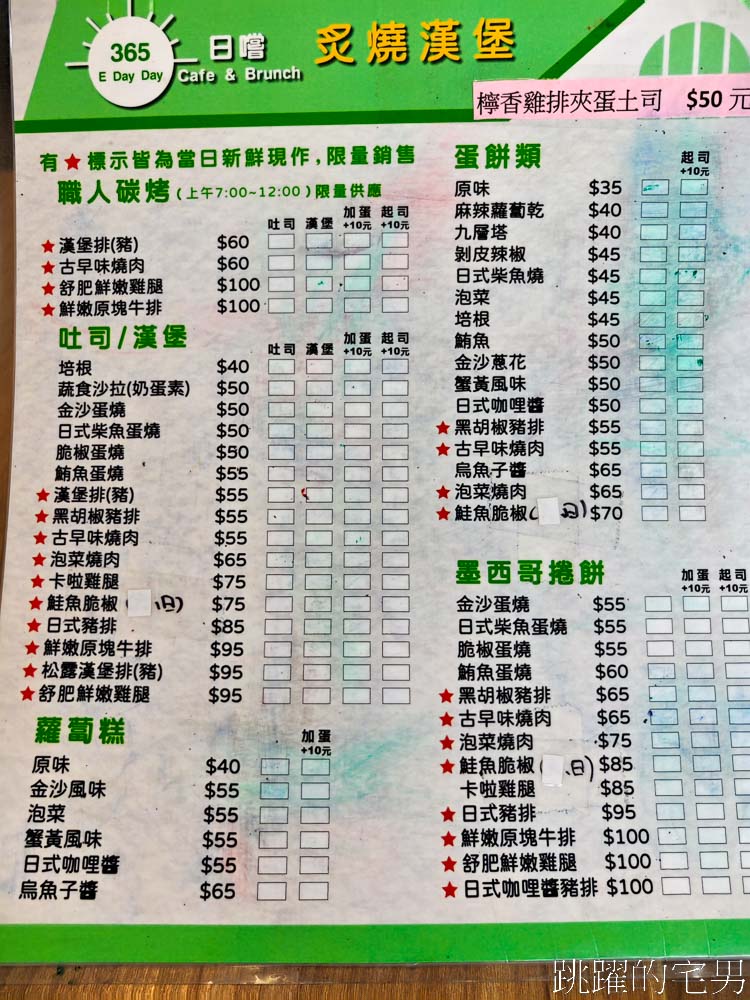 365
E Day Day
日嚐
Cafe & Brunch
炙燒漢堡
檸香雞排夾蛋土司 $50 元
有★標示皆為當日新鮮現作,限量銷售
職人碳烤(上午7:00~12:00)限量供應
吐司 漢堡 加蛋+10元 起司+10元
★漢堡排(豬) $60
★古早味燒肉 $60
★舒肥鮮嫩雞腿 $100
★鮮嫩原塊牛排 $100
吐司/漢堡
吐司 漢堡 加蛋+10元 起司+10元
培根 $40
蔬食沙拉(奶蛋素) $50
金沙蛋燒 $50
日式柴魚蛋燒 $50
脆椒蛋燒 $50
鮪魚蛋燒 $55
★漢堡排(豬) $55
★黑胡椒豬排 $55
★古早味燒肉 $55
★泡菜燒肉 $65
★卡啦雞腿 $75
★鮭魚脆椒( 、日) $75
★日式豬排 $85
★鮮嫩原塊牛排 $95
★松露漢堡排(豬) $95
★舒肥鮮嫩雞腿 $95
蘿蔔糕
加蛋+10元
原味 $40
金沙風味 $55
泡菜 $55
蟹黃風味 $55
日式咖哩醬 $55
烏魚子醬 $65
蛋餅類
起司+10元
原味 $35
麻辣蘿蔔乾 $40
九層塔 $40
剝皮辣椒 $45
日式柴魚燒 $45
泡菜 $45
培根 $45
鮪魚 $50
金沙蔥花 $50
蟹黃風味 $50
日式咖哩醬 $50
★黑胡椒豬排 $55
★古早味燒肉 $55
烏魚子醬 $65
★泡菜燒肉 $65
★鮭魚脆椒( 日) $70
墨西哥捲餅
加蛋+10元 起司+10元
金沙蛋燒 $55
日式柴魚蛋燒 $55
脆椒蛋燒 $55
鮪魚蛋燒 $60
★黑胡椒豬排 $65
★古早味燒肉 $65
★泡菜燒肉 $75
★鮭魚脆椒( 、日) $85
卡啦雞腿 $85
★日式豬排 $95
★鮮嫩原塊牛排 $100
★舒肥鮮嫩雞腿 $100
★日式咖哩醬豬排 $100
跳躍的宅男